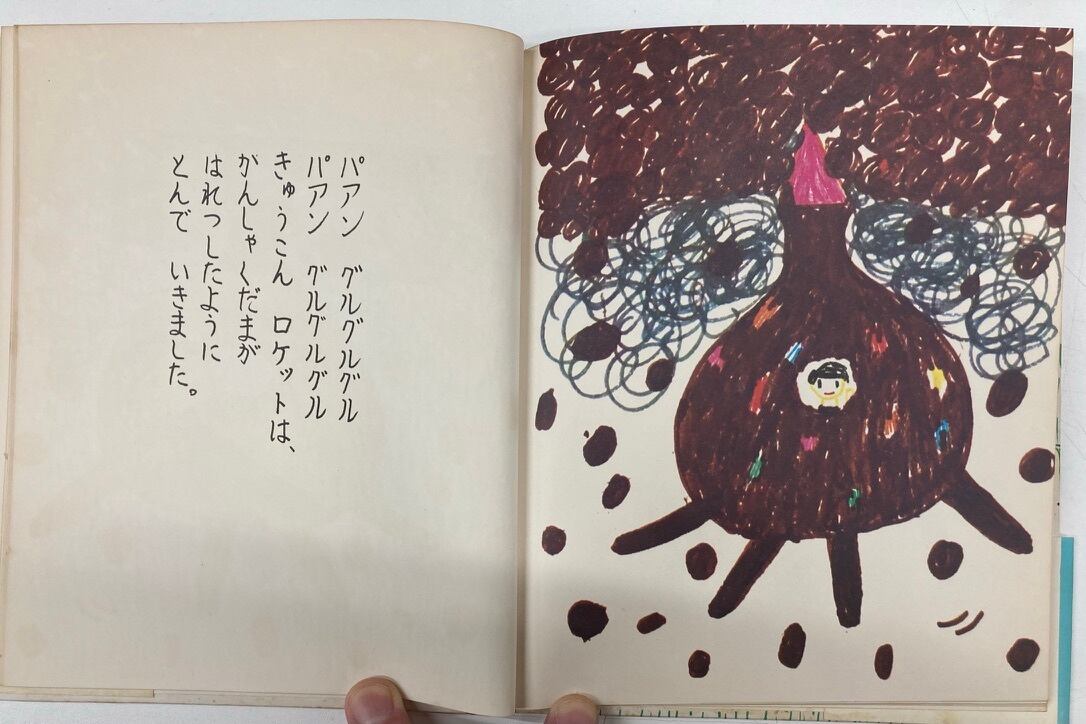 パアン グルグルグル
パアン グルグルグル
きゅうこん ロケットは、
かんしゃくだまが
はれつしたように
とんで いきました。